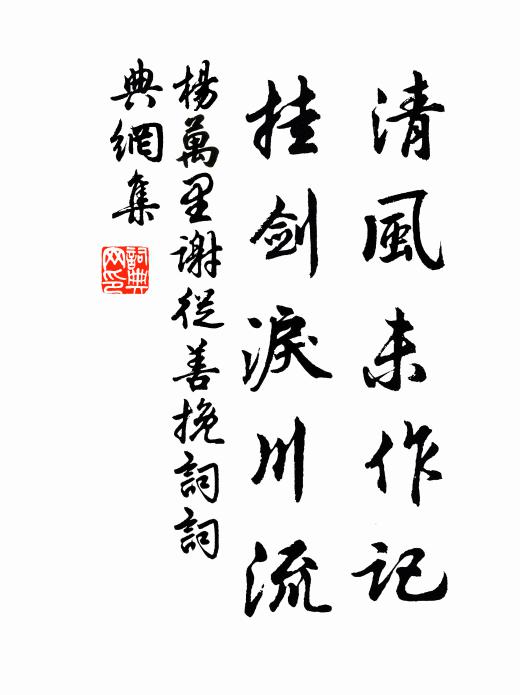 清風未作記
挂劍淚川流
楊萬里謝從善挽詞詞
典網集
詞典
网印